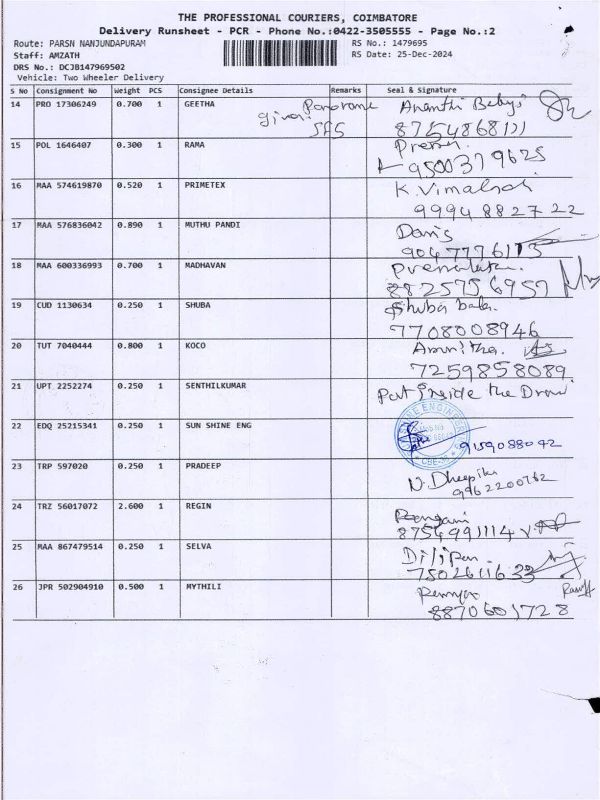 THE PROFESSIONAL COURIERS, COIMBATORE
Delivery Runsheet - PCR - Phone No.:0422-3505555 - Page No.:2
Route: PARSN NANJUNDAPURAM
RS No.: 1479695
Staff: AMZATH
RS Date: 25-Dec-2024
DRS No.: DCJB147969502
Vehicle: Two Wheeler Delivery
S No Consignment No Weight PCS Consignee Details Remarks Seal & Signature
14 PRO 17306249 0.700 1 GEETHA Ananthi
8754868111
15 POL 1646407 0.300 1 RAMA
9500379625
16 MAA 574619870 0.520 1 PRIMETEX K.Vimal
9994882722
17 MAA 576836042 0.890 1 MUTHU PANDI
9047776113
18 MAA 600336993 0.700 1 MADHAVAN Premalatha.
8825756957
19 CUD 1130634 0.250 1 SHUBA Shuba bala.
7708008946
20 TUT 7040444 0.800 1 KOCO
7259858089
21 UPT 2252274 0.250 1 SENTHILKUMAR Put inside the
22 EDQ 25215341 0.250 1 SUN SHINE ENG 9159088042
23 TRP 597020 0.250 1 PRADEEP N.Dheepika
9962200762
24 TRZ 56017072 2.600 1 REGIN
8754991114
25 MAA 867479514 0.250 1 SELVA Dilipan.
7502611633
26 JPR 502904910 0.500 1 MYTHILI Remya
8870601728